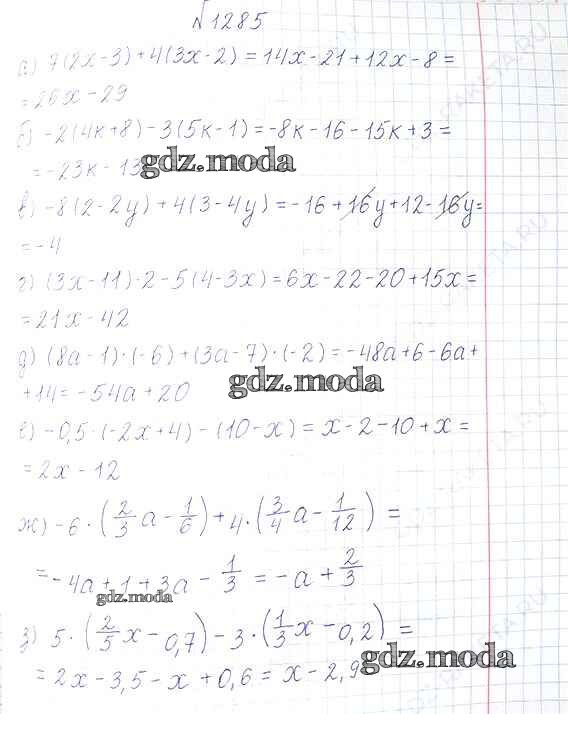 №1285
а) 7(2x-3)+4(3x-2)=14x-21+12x-8=
=26x-29
б) -2(4k+8)-3(5k-1)=-8k-16-15k+3=
=-23k-13
gdz.moda
в) -8(2-2y)+4(3-4y)=-16+16y+12-16y=
=-4
г) (3x-11)·2-5(4-3x)=6x-22-20+15x=
=21x-42
д) (8a-1)·(-6)+(3a-7)·(-2)=-48a+6-6a+
+14=-54a+20
gdz.moda
е) -0,5·(-2x+4)-(10-x)=x-2-10+x=
=2x-12
ж) -6·(2/3 a-1/6)+4·(3/4 a-1/12)=
=-4a+1+3a-1/3=-a+2/3
gdz.moda
з) 5·(2/5 x-0,7)-3·(1/3 x-0,2)=
=2x-3,5-x+0,6=x-2,9
gdz.moda